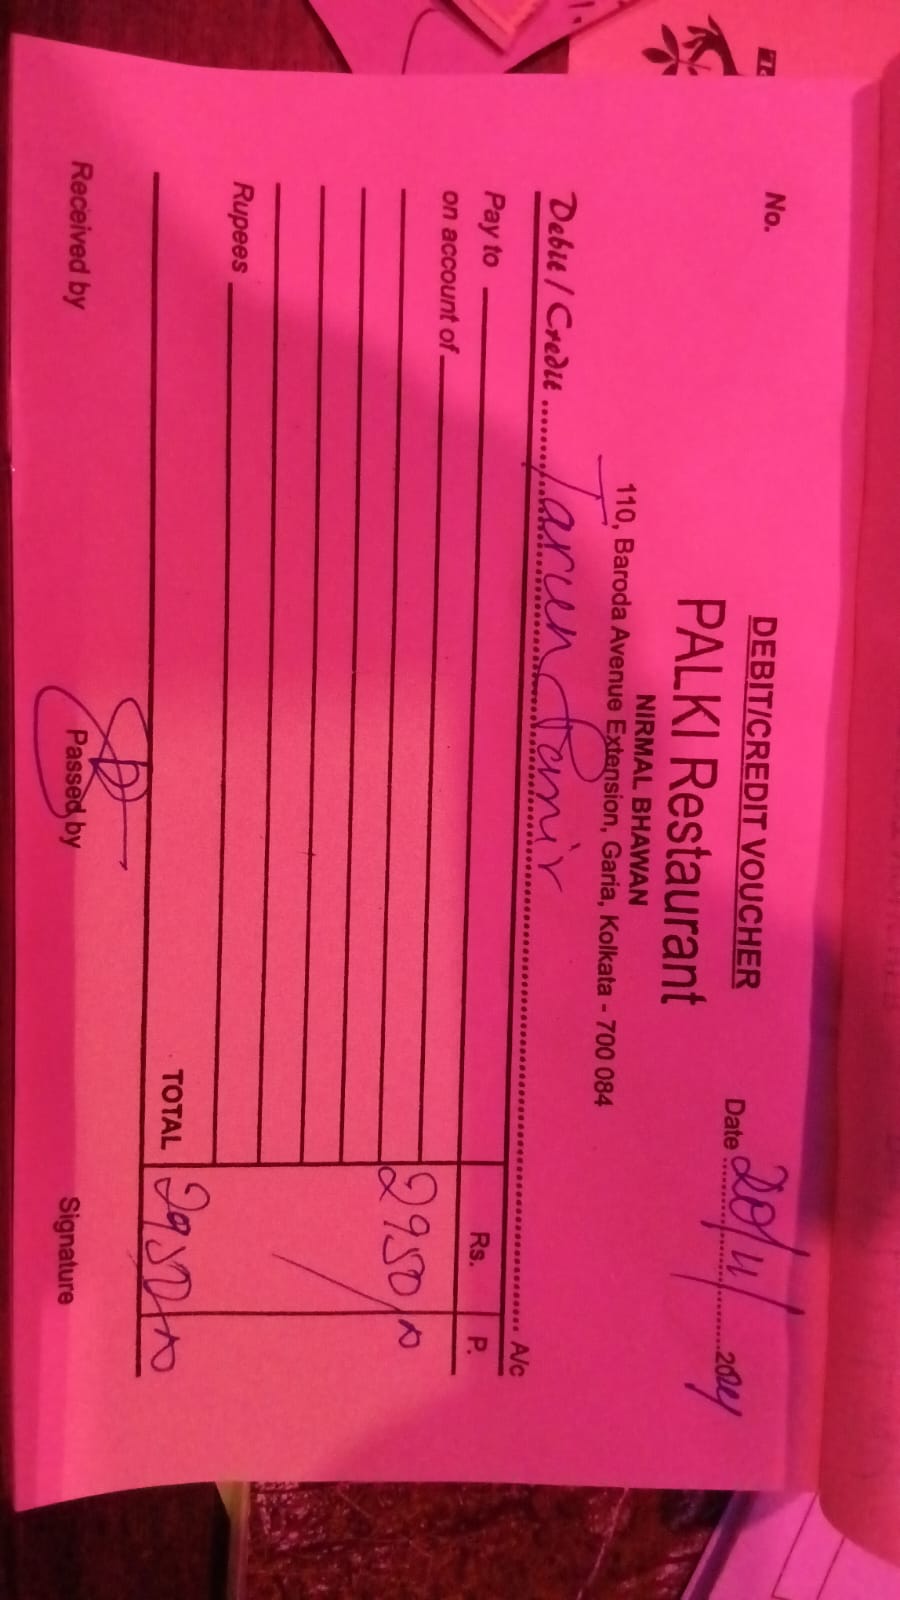 No.
DEBIT/CREDIT VOUCHER
Date 20/11/2024
PALKI Restaurant
NIRMAL BHAWAN
110, Baroda Avenue Extension, Garia, Kolkata - 700 084
Debit / Credit ........................ A/c
Pay to Rs. P.
on account of
2950/-
Rupees
TOTAL 2950/-
Received by Passed by Signature